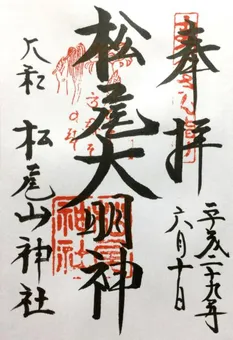 奉拝
平成二十九年
六月十日
松尾大明神
大和
松尾山神社